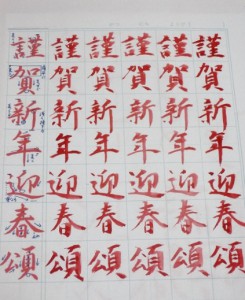 謹 謹 謹 謹 謹 謹
賀 賀 賀 賀 賀 賀
新 新 新 新 新 新
年 年 年 年 年 年
迎 迎 迎 迎 迎 迎
春 春 春 春 春 春
頌 頌 頌 頌 頌 頌